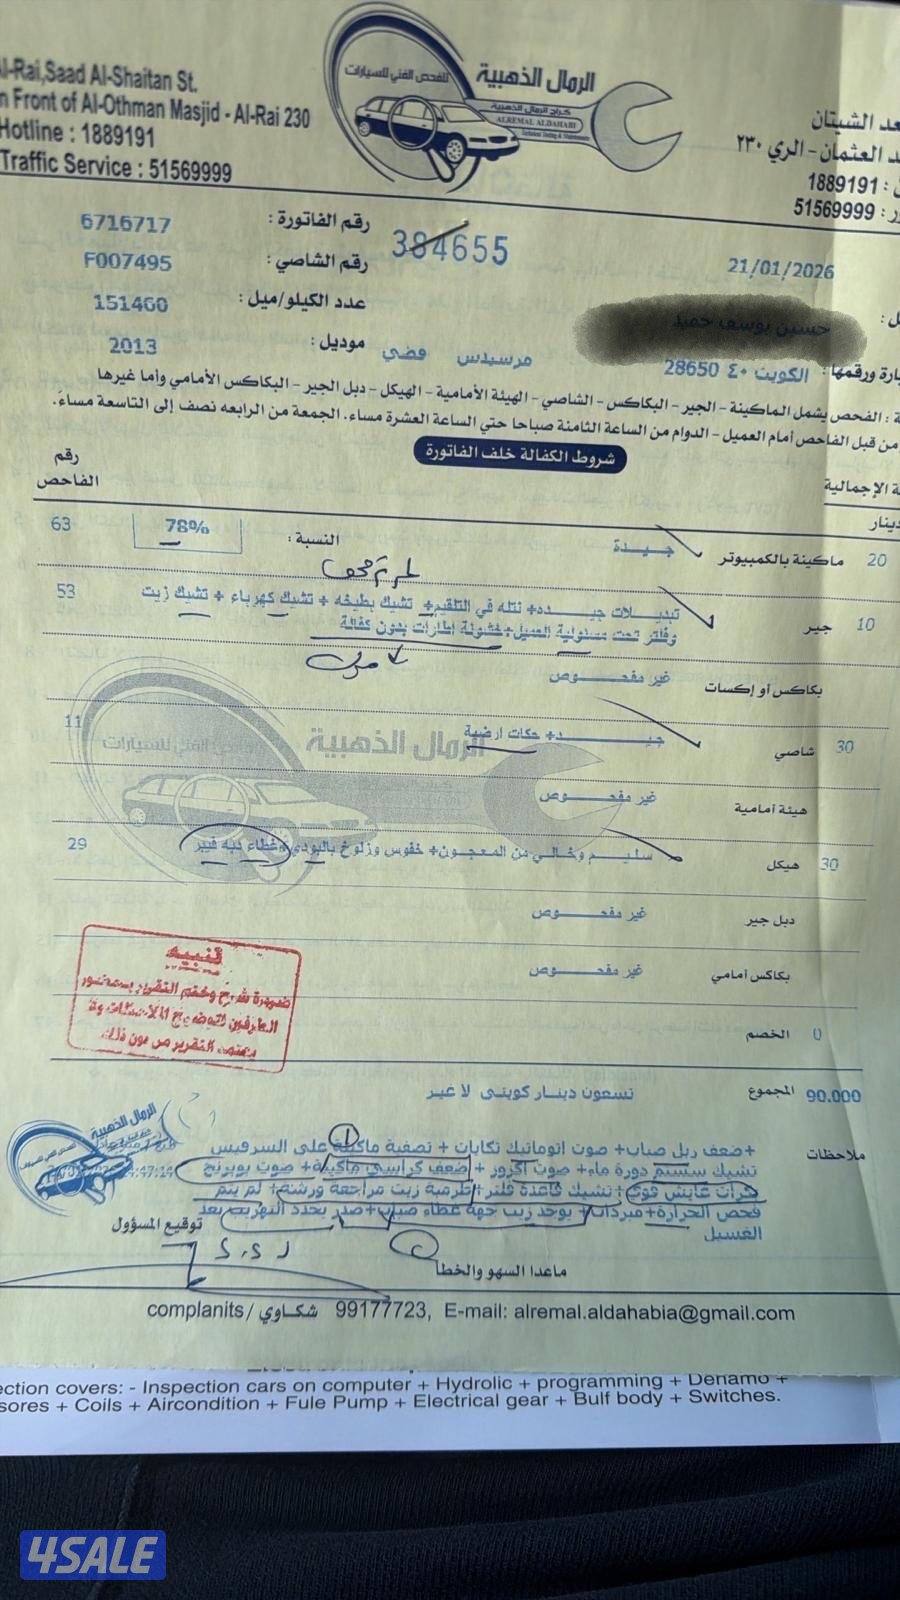 Al-Rai,Saad Al-Shaitan St.
n Front of Al-Othman Masjid - Al-Rai 230
Hotline : 1889191
Traffic Service : 51569999
الرمال الذهبية
للفحص الفني للسيارات
كراج الرمال الذهبية
ALREMAL ALDAHABI
Technical Testing & Maintenance
عد الشيتان
د العثمان - الري ٢٣٠
1889191 :
51569999 :
رقم الفاتورة : 6716717
384655
رقم الشاصي : F007495
21/01/2026
عدد الكيلو/ميل : 151460
حسين يوسف حميد
موديل : 2013
مرسيدس فضي
يارة ورقمها : الكويت ٤٠ 28650
ة : الفحص يشمل الماكينة - الجير - البكاكس - الشاصي - الهيئة الأمامية - الهيكل - دبل الجير - البكاكس الأمامي وأما غيرها
من قبل الفاحص أمام العميل - الدوام من الساعة الثامنة صباحا حتي الساعة العشرة مساء. الجمعة من الرابعه نصف إلى التاسعة مساءً.
شروط الكفالة خلف الفاتورة
رقم الفاحص
ة الإجمالية
دينار
20 ماكينة بالكمبيوتر جيدة النسبة : 78% 63
10 جير تبديلات جيده+ نتله في التلقيم+ تشيك بطيخه + تشيك كهرباء + تشيك زيت 53
وفلتر تحت مسئولية العميل+خشونة اطارات بدون كفالة
بكاكس أو إكسات غير مفحوص
30 شاصي جيد+ حكات ارضية 11
الرمال الذهبية
للفحص الفني للسيارات
هيئة أمامية غير مفحوص
30 هيكل سليم وخالي من المعجون+ خفوس وزلوخ بالبودي+غطاء دبه فيبر 29
دبل جير غير مفحوص
بكاكس أمامي غير مفحوص
تنبيه
ضرورة شرح وختم التقرير بحضور
الطرفين لتوضيح الملاحظات ولا
يعتمد التقرير من دون ذلك
0 الخصم
90.000 المجموع تسعون دينار كويتى لا غير
ملاحظات
+ضعف ربل صباب+ صوت اتوماتيك تكايات + تصفية ماكينة على السرفيس
تشيك سستم دورة ماء+ صوت اكزوز + ضعف كراسي ماكينة+ صوت بوبرنج
كرات عايش قوي+تشيك قاعدة فلتر+طرمبة زيت مراجعة ورشة+ لم يتم
فحص الحرارة+ مبردات+ يوجد زيت جهة غطاء صباب+صدر يحدد التهريب بعد
الغسيل
الرمال الذهبية
توقيع المسؤول
ماعدا السهو والخطأ
complanits / شكاوي 99177723, E-mail: alremal.aldahabia@gmail.com
ection covers: - Inspection cars on computer + Hydrolic + programming + Denamo +
sores + Coils + Aircondition + Fule Pump + Electrical gear + Bulf body + Switches.
4SALE